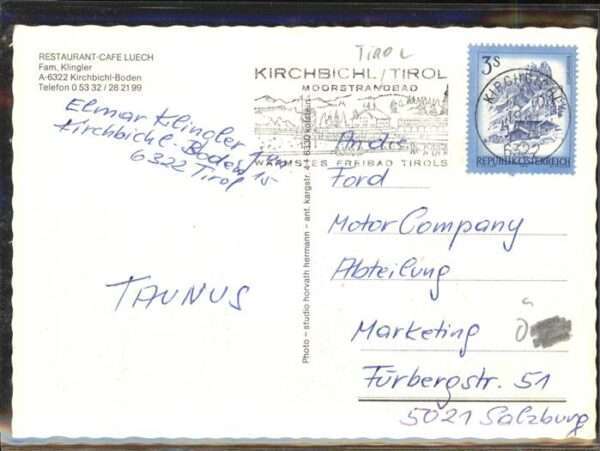 RESTAURANT-CAFE LUECH
Fam. Klingler
A-6322 Kirchbichl-Boden
Telefon 0 53 32 / 28 21 99
Elmar Klingler
Kirchbichl-Boden 15
6322 Tirol
TAUNUS
Photo – studio horvath hermann – ant. kargstr. 4 – 6330 kufstein
TIROL
KIRCHBICHL/TIROL
MOORSTRANDBAD
WÄRMSTES FREIBAD TIROLS
3 S
KIRCHBICHL
6322
REPUBLIK ÖSTERREICH
An die
Ford
Motor Company
Abteilung
Marketing
Ö
Fürbergstr. 51
5021 Salzburg